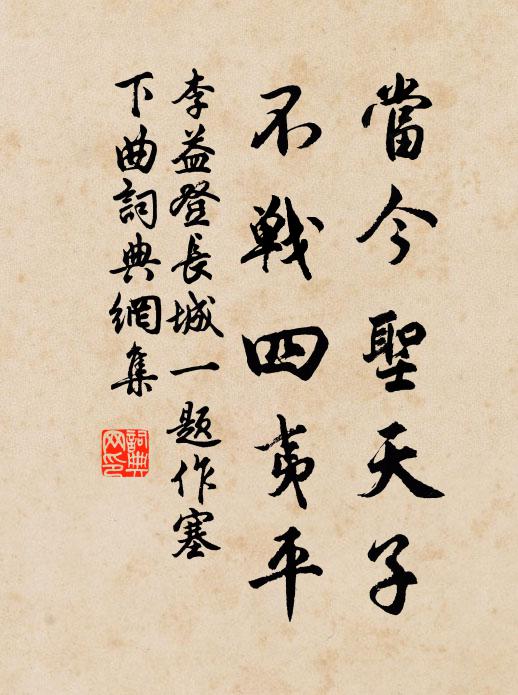 當今聖天子
不戰四夷平
李益登長城一題作塞
下曲詞典網集
詞典
网印